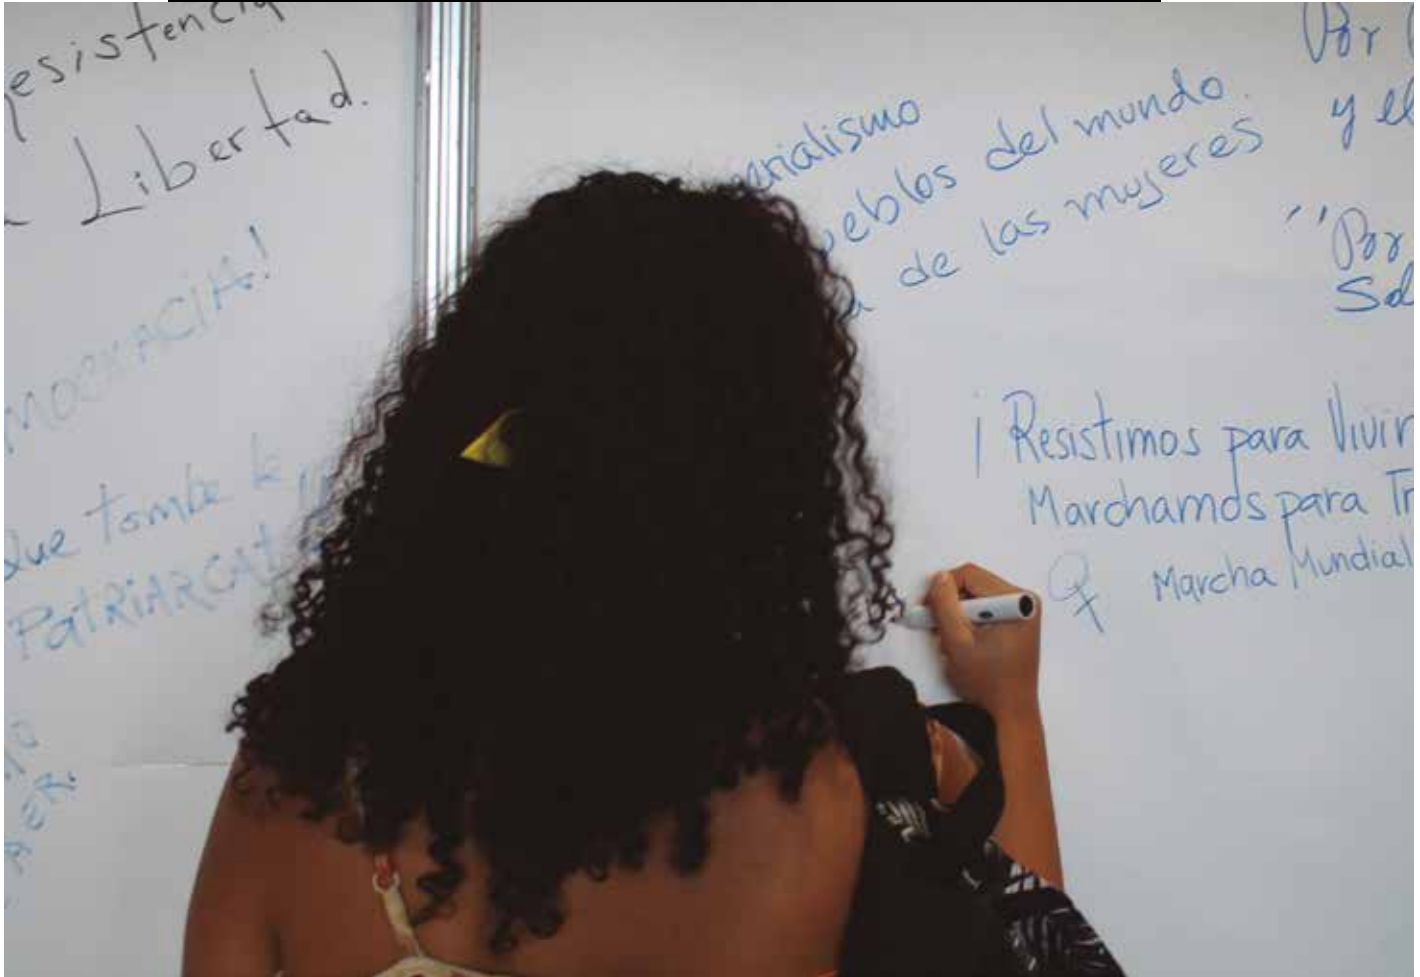 esistencia
Libertad.
MOCRACIA!
Que tombe le
PATRIARCAT
erialismo
ueblos del mundo.
a de las mujeres
Por
y el
"Por
Sol
¡Resistimos para Vivir
Marchamos para Tr
Marcha Mundial